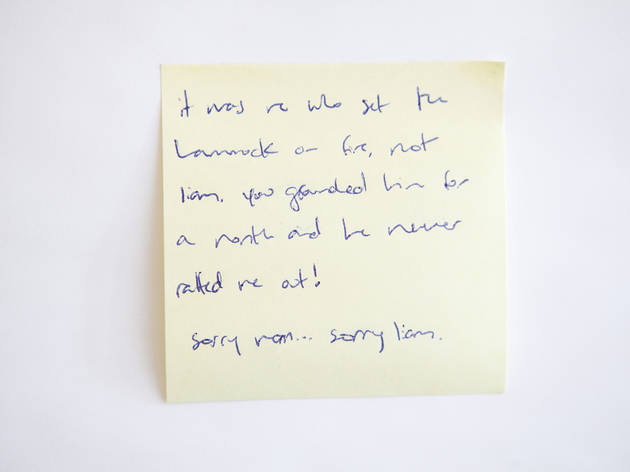 it was me who set the
hammock on fire, not
liam. you grounded him for
a month and he never
ratted me out!
sorry mom... sorry liam.